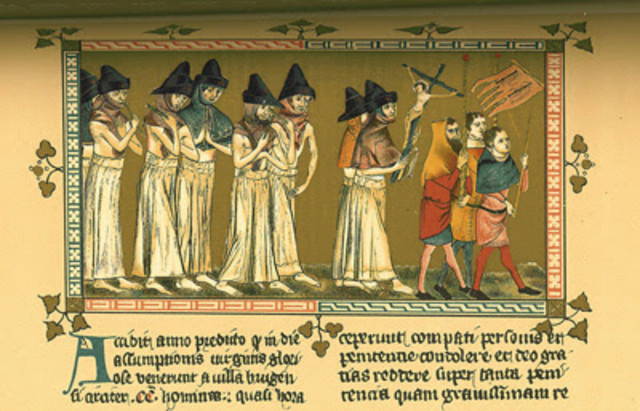 Accidit anno predicto q in die
assumptionis uirginis glori
ose venerunt a villa brugen
si circiter CC homines quasi hora
ceperunt compati personis et
penitentie condolere et deo gra
tias reddere super tanta peni
tencia quam grauissimam re